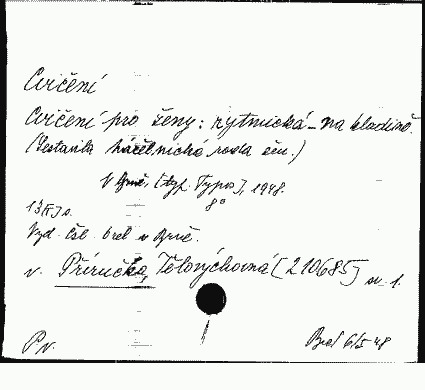 Cvičení
Cvičení pro ženy: rytmická – na kladině.
(Sestavila náčelnická rada čsn.)
V Brně, [typ. Typos], 1948.
8°
13[I] s.
Vyd. čsl. v Brně.
v. Příručka, Tělovýchovná [210685] sv. 1.
Pv. 6/5 48